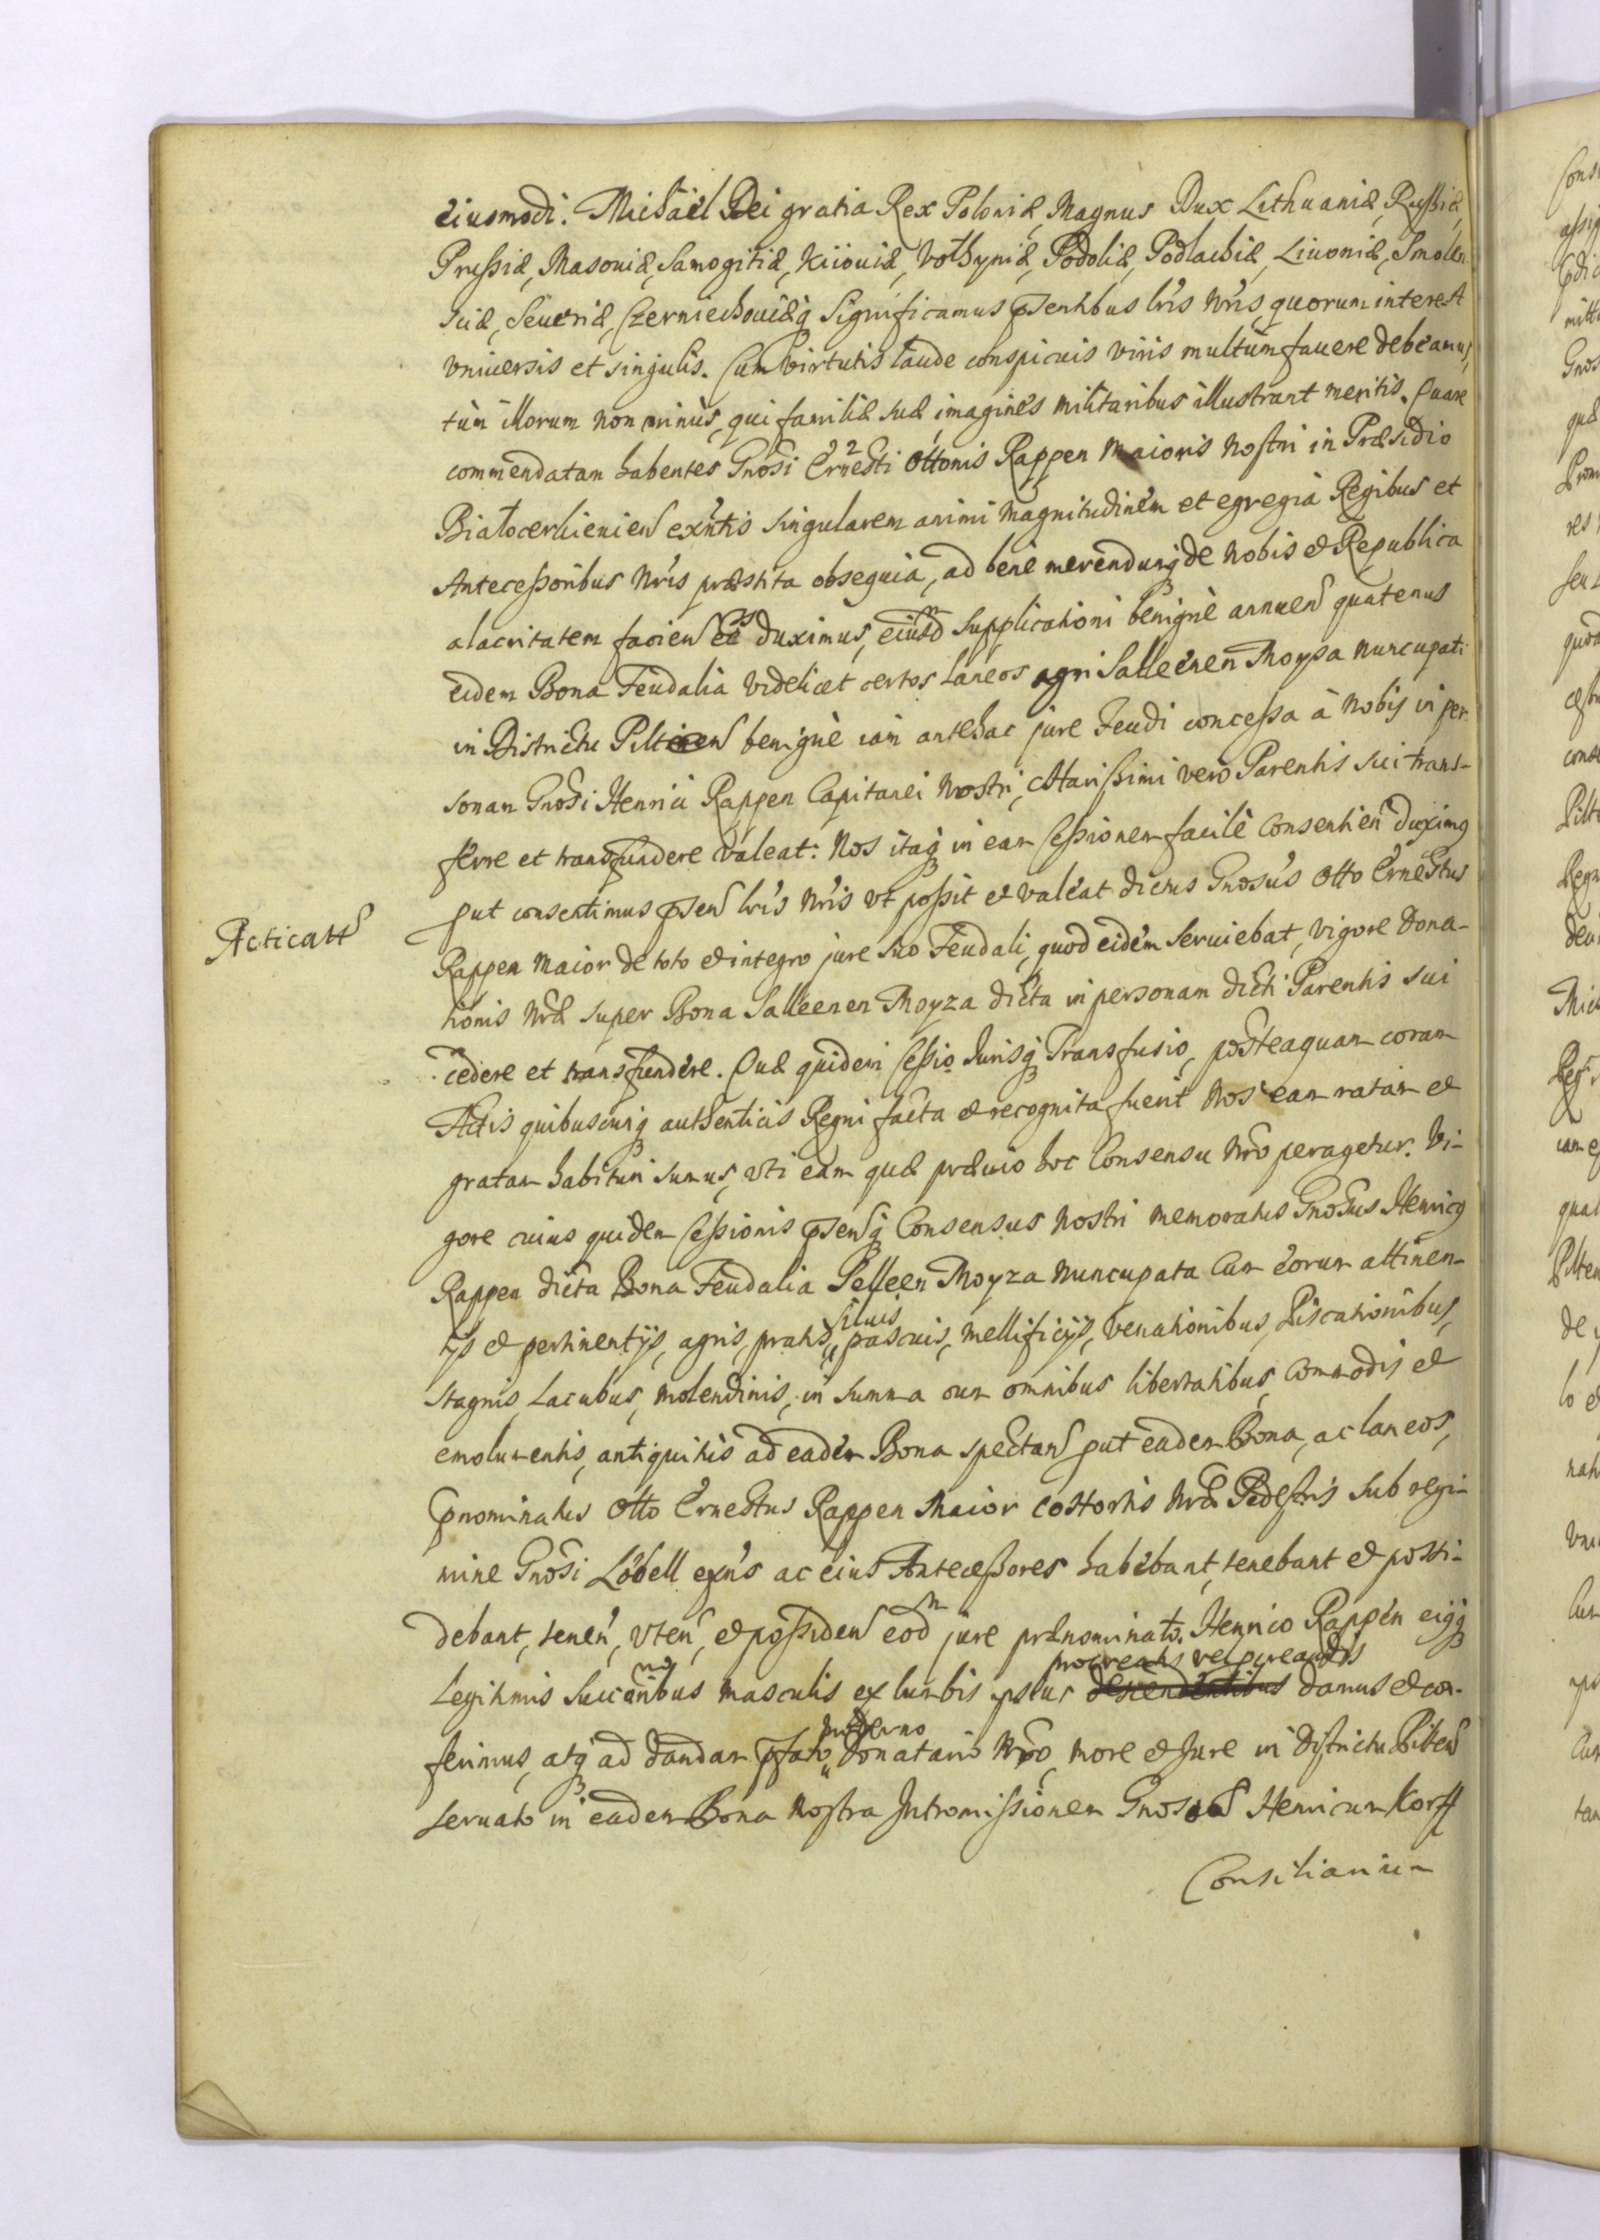 eiusmodi. Michaël Dei gratia Rex Poloniæ, Magnus Dux Lithuaniæ, Russiæ,
Prussiæ, Masouiæ, Samogitiæ, Kiiouiæ, Vołhyniæ, Podoliæ, Podlachiæ, Liuoniæ, Smolen
sciæ, Seueriæ, Czerniechouiæq Significamus pntibus lris nris quorum interest
vniuersis et singulis. Cum virtutis laude conspicuis viris multum fauere debeamus,
tùm illorum non minùs, qui familiæ suæ imagines militaribus illustrant meritis. Quare
commendatam habentes Gnosi Ernesti Ottonis Rappen Maioris nostri in Præsidio
Białocerkieuien exntis singularem animi magnitudinem et egregia Regibus et
Antecessoribus nris præstita obsequia, ad bene merendumq de nobis et Republica
alacritatem facien duximus, eiusdm supplicationi benignè annuen quatenus
eidem Bona Feudalia videlicet certos laneos agri Salleenen Moysa nuncupati
in Districtu Pilten benignè iam antehac jure Feudi concessa à nobis in per
sonam Gnosi Henrici Rappen Capitanei nostri, charissimi vero Parentis sui trans-
ferre et transfundere valeat. Nos itaq in eam Cessionem facilè consentien duximq
put consentimus psen lris nris vt possit et valeat dictus Gnosus Otto Ernestus
Acticatt
Rappen Maior de toto et integro jure suo Feudali, quod eidem seruiebat, vigore Dona-
tionis nræ super Bona Salleenen Moyza dicta in personam dicti Parentis sui
cedere et transfundere. Quæ quidem Cessio Iurisq Transfusio, posteaquam coram
Actis quibuscunq authenticis Regni facta et recognita fuerit Nos eam ratam et
gratam habituri sumus, vti eam quæ præuio hoc Consensu nro peragetur. Vi-
gore cuius quidem Cessionis psenq Consensus nostri memoratus Gnosus Henricq
Rappen dicta Bona Feudalia Selleen Moyza nuncupata cum eorum attinen-
tijs et pertinentijs, agris, pratis, siluis pascuis, mellificijs, venationibus, Piscationibus,
stagnis, Lacubus, molendinis, in summa cum omnibus libertatibus, commodis et
emolumentis, antiquitùs ad eadem Bona spectan put eadem Bona, ac laneos,
pnominatus Otto Ernestus Rappen Maior cohortis nræ Pedestris sub regi-
mine Gnosi Löbell exns ac eius Antecessores habebant, tenebant et possi-
debant, tenen, vten, et possiden eodm jure prænominato Henrico Rappen eiqq
Legitimis Succoribus masculis ex lumbis ipsius procreatis vel pcreandis descendentibus damus et con-
ferimus, atq ad dandam pfato moderno Donatario nro, more et Jure in Districtu Pilten
seruato in eadem Bona nostra Intromissionem Henricum Korff
Consiliarium